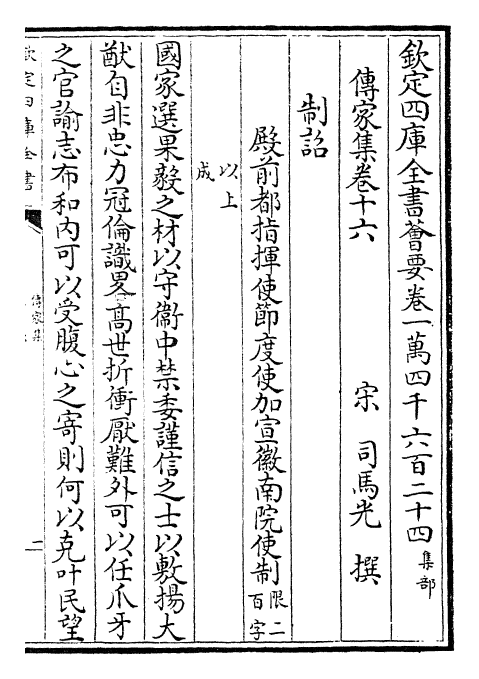 欽定四庫全書薈要卷一萬四千六百二十四 集部
傳家集卷十六
宋 司馬光 撰
制詔
殿前都指揮使節度使加宣徽南院使制 限二百字
以上成
國家選果毅之材以守衞中禁委謹信之士以敷揚大
猷自非忠力冠倫識畧髙世折衝厭難外可以任爪牙
之官諭志布和内可以受腹心之寄則何以克叶民望
欽定四庫全書
傳家集
二